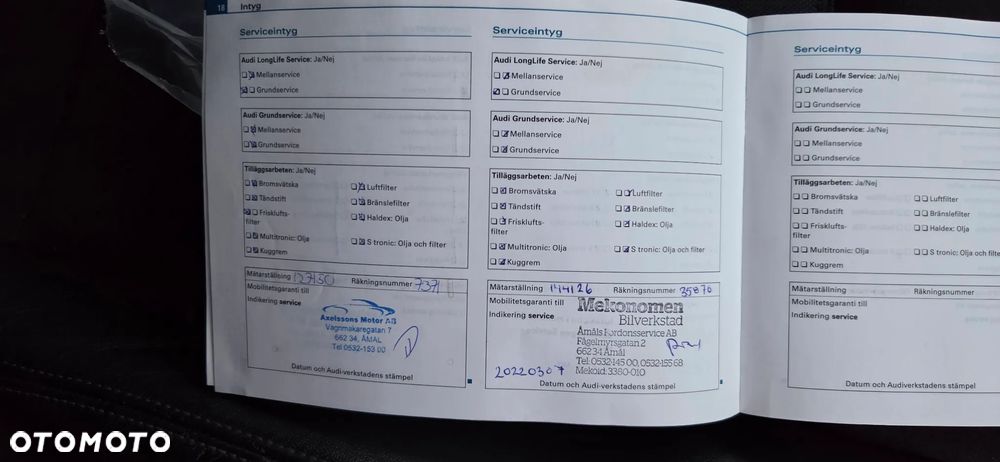 18 Intyg
Serviceintyg
Audi LongLife Service: Ja/Nej
Mellanservice
Grundservice
Audi Grundservice: Ja/Nej
Mellanservice
Grundservice
Tilläggsarbeten: Ja/Nej
Bromsvätska
Luftfilter
Tändstift
Bränslefilter
Frisklufts-
filter
Haldex: Olja
Multitronic: Olja
S tronic: Olja och filter
Kuggrem
Mätarställning 127150 Räkningsnummer 7371
Mobilitetsgaranti till
Indikering service
Axelssons Motor AB
Vagnmakaregatan 7
662 34, ÅMÅL
Tel 0532-153 00
Datum och Audi-verkstadens stämpel
Serviceintyg
Audi LongLife Service: Ja/Nej
Mellanservice
Grundservice
Audi Grundservice: Ja/Nej
Mellanservice
Grundservice
Tilläggsarbeten: Ja/Nej
Bromsvätska
Luftfilter
Tändstift
Bränslefilter
Frisklufts-
filter
Haldex: Olja
Multitronic: Olja
S tronic: Olja och filter
Kuggrem
Mätarställning 144126 Räkningsnummer 35870
Mobilitetsgaranti till
Indikering service
Mekonomen
Bilverkstad
Åmåls Fordonsservice AB
Fågelmyrsgatan 2
662 34 Åmål
Tel: 0532-145 00, 0532-155 68
Mekoid: 3380-010
20220307
Datum och Audi-verkstadens stämpel
Serviceintyg
Audi LongLife Service: Ja/Nej
Mellanservice
Grundservice
Audi Grundservice: Ja/Nej
Mellanservice
Grundservice
Tilläggsarbeten: Ja/Nej
Bromsvätska
Luftfilter
Tändstift
Bränslefilter
Frisklufts-
filter
Haldex: Olja
Multitronic: Olja
S tronic: Olja och filter
Kuggrem
Mätarställning
Räkningsnummer
Mobilitetsgaranti till
Indikering service
Datum och Audi-verkstadens stämpel
OTOMOTO